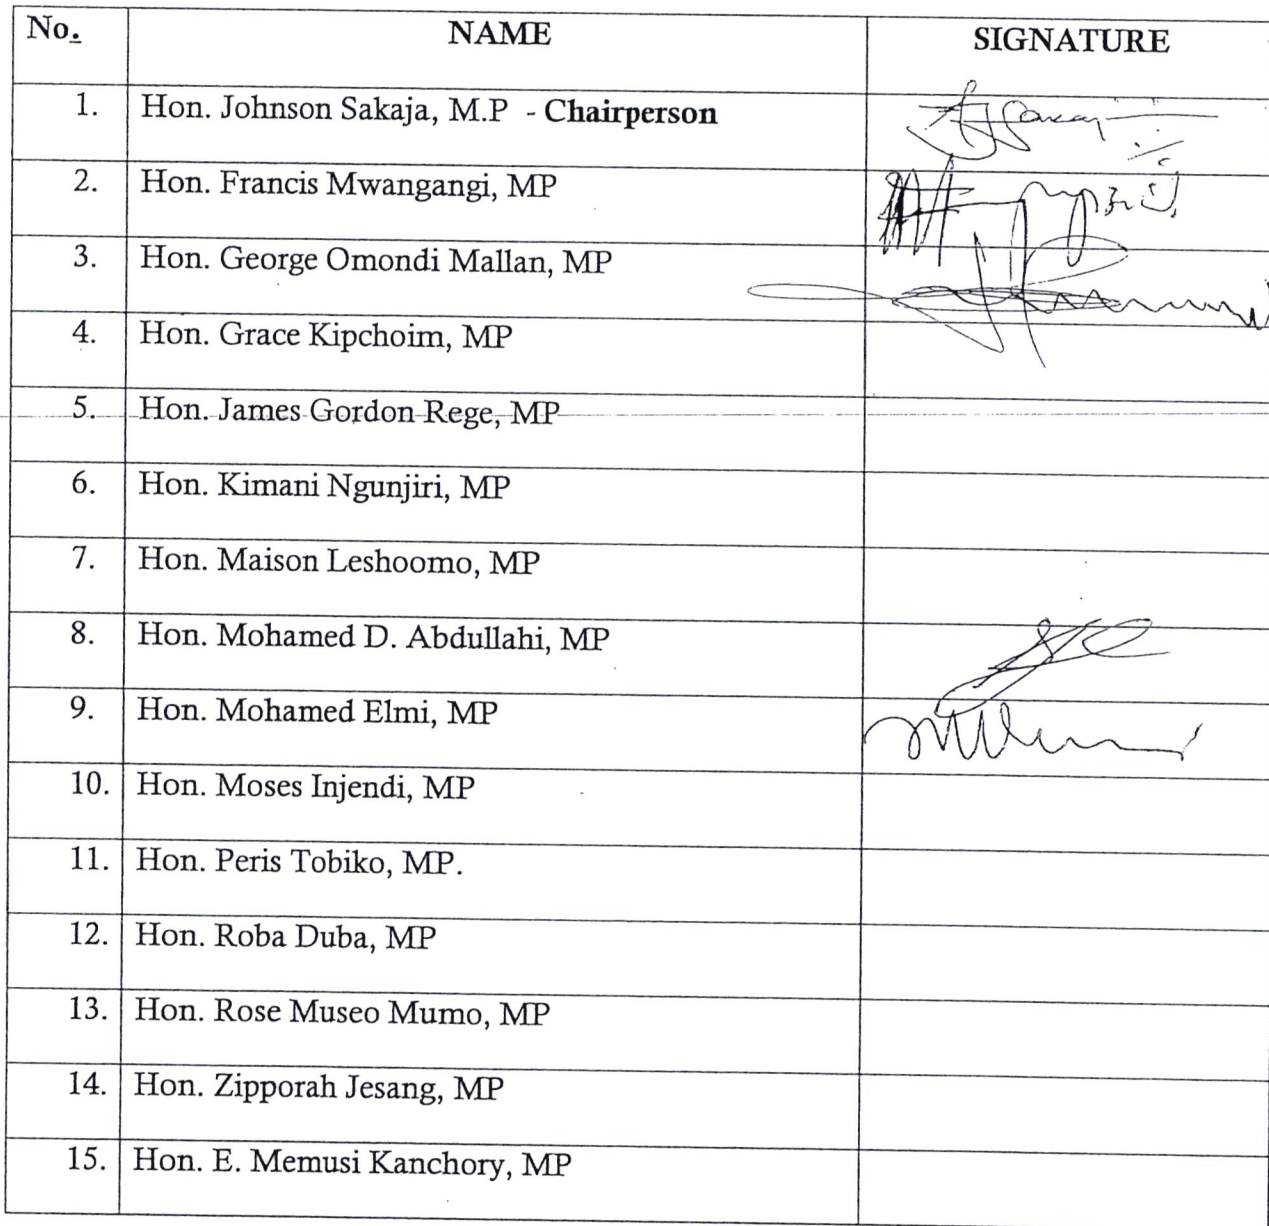 No. NAME SIGNATURE
1. Hon. Johnson Sakaja, M.P - Chairperson
2. Hon. Francis Mwangangi, MP
3. Hon. George Omondi Mallan, MP
4. Hon. Grace Kipchoim, MP
5. Hon. James Gordon Rege, MP
6. Hon. Kimani Ngunjiri, MP
7. Hon. Maison Leshoomo, MP
8. Hon. Mohamed D. Abdullahi, MP
9. Hon. Mohamed Elmi, MP
10. Hon. Moses Injendi, MP
11. Hon. Peris Tobiko, MP.
12. Hon. Roba Duba, MP
13. Hon. Rose Museo Mumo, MP
14. Hon. Zipporah Jesang, MP
15. Hon. E. Memusi Kanchory, MP